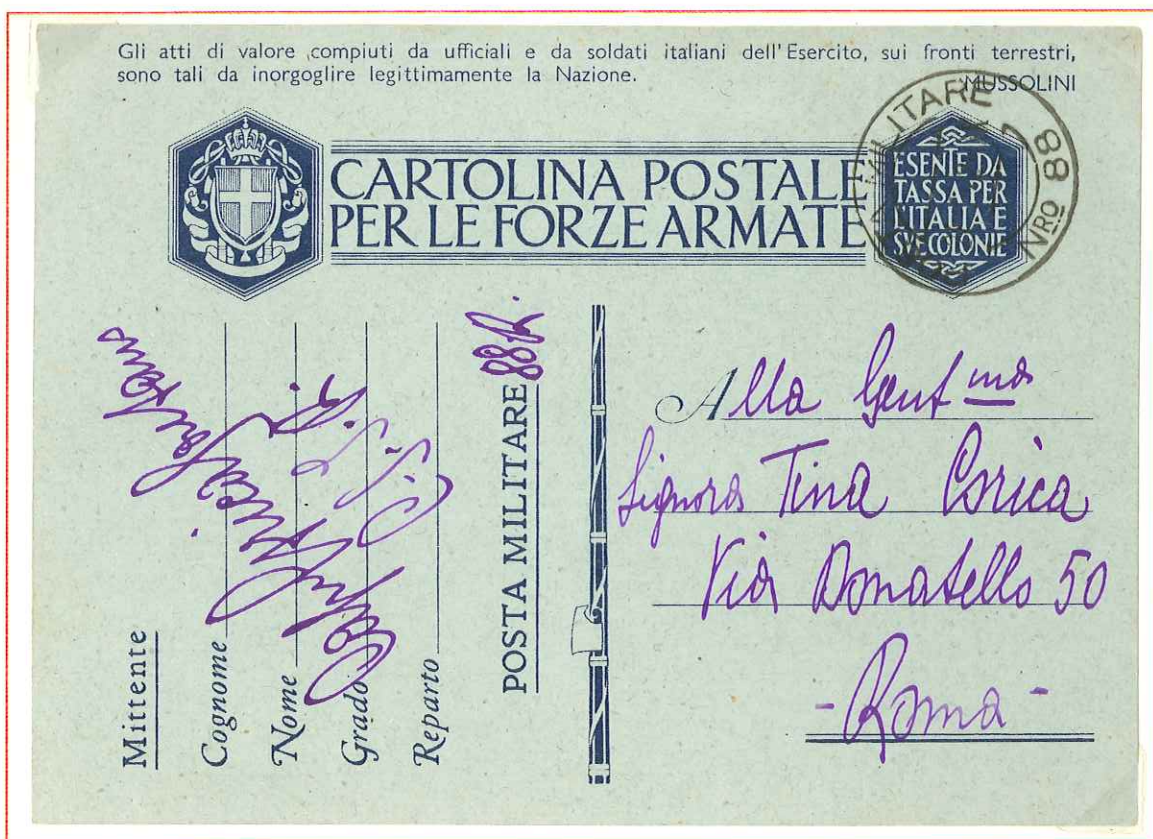 Gli atti di valore compiuti da ufficiali e da soldati italiani dell'Esercito, sui fronti terrestri,
sono tali da inorgoglire legittimamente la Nazione.
MUSSOLINI
CARTOLINA POSTALE
PER LE FORZE ARMATE
ESENTE DA
TASSA PER
L'ITALIA E
SVE COLONIE
MILITARE
NRO 88
Mittente
Cognome
Nome
Grado
Reparto
POSTA MILITARE 88
Alla Gent ma
Signora Tina Corica
Via Donatello 50
- Roma -